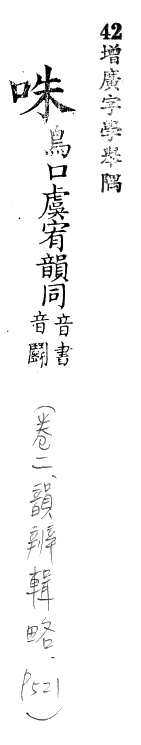 42增廣字學舉隅
咮鳥口虞宥韻同音書
音鬭
(卷二、韻辦輯略、P521)